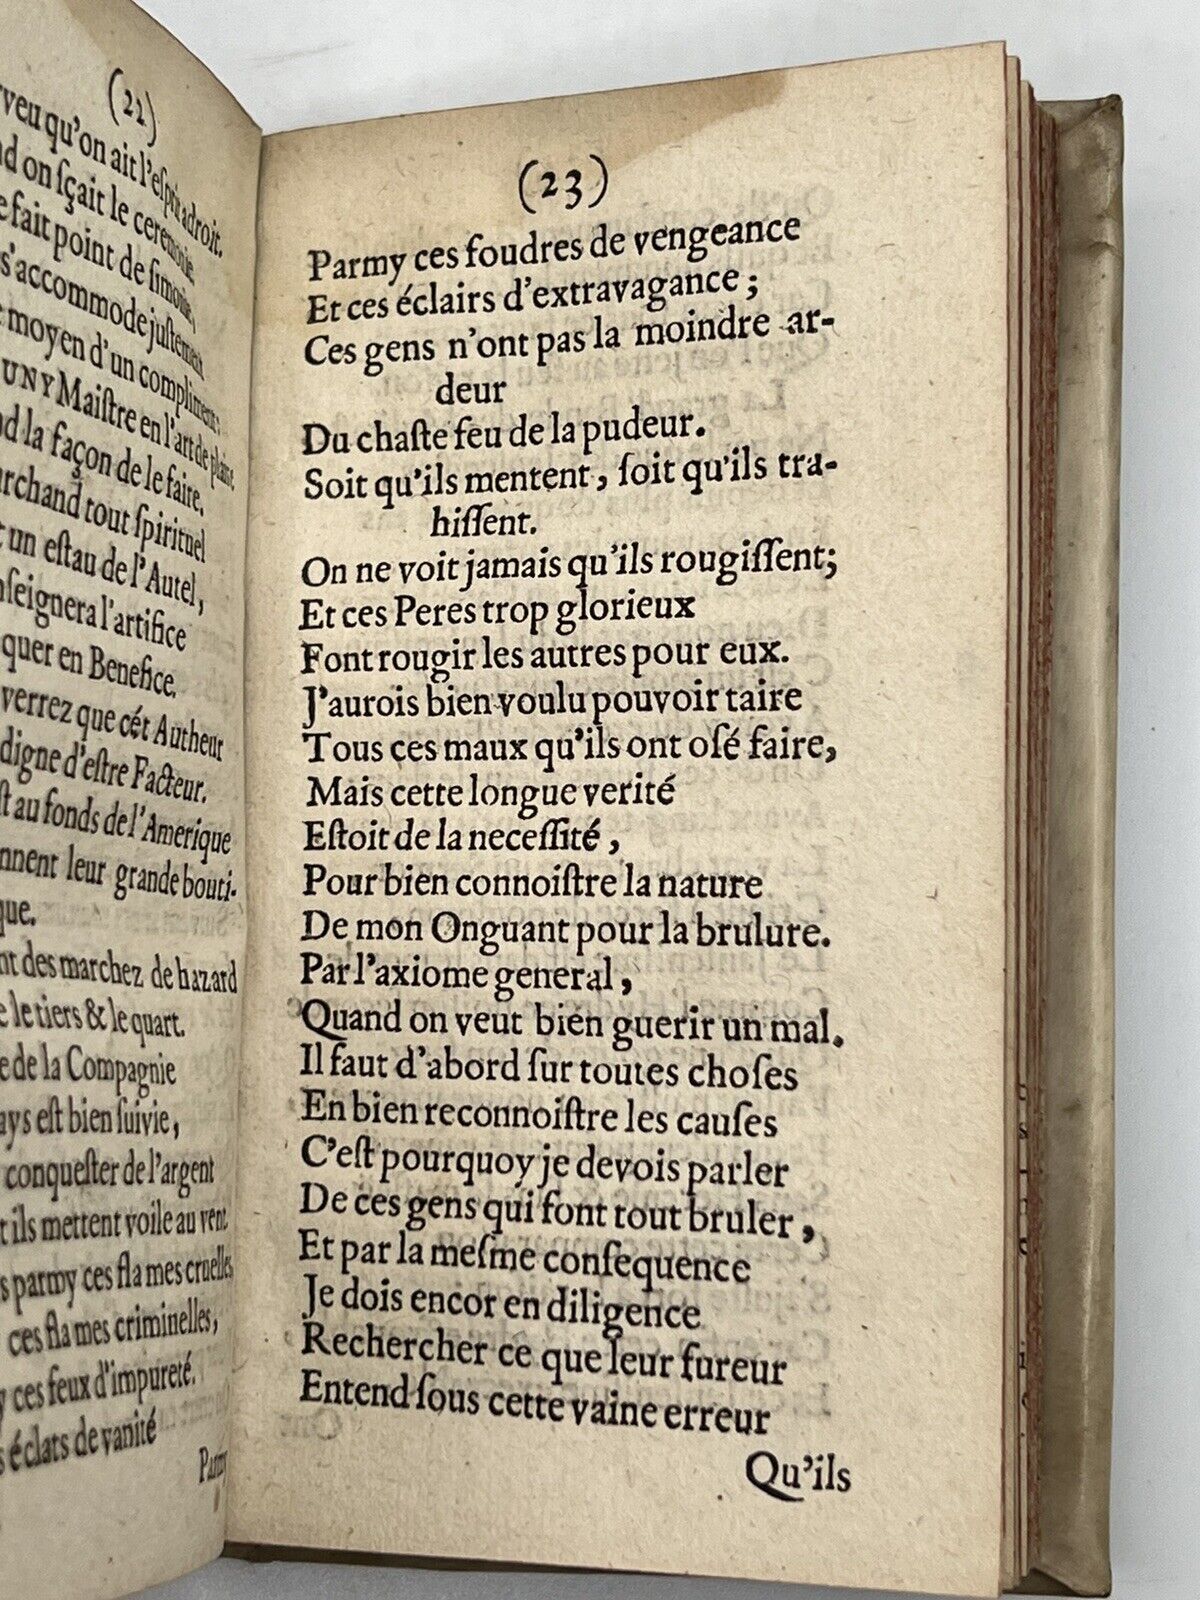 (22)
qu'on ait l'eſprit adroit.
on ſçait le ceremonie
fait point de ſimonie,
s'accommode juſtement
moyen d'un compliment:
Maiſtre en l'art de plaire.
la façon de le faire.
tout ſpirituel
un eſtau de l'Autel,
l'artifice
en Benefice.
verrez que cét Autheur
digne d'eſtre Facteur.
au fonds de l'Amerique
leur grande bouti-
que.
des marchez de hazard
le tiers & le quart.
de la Compagnie
eſt bien ſuivie,
conqueſter de l'argent
ils mettent voile au vent
parmy ces flames cruelles
ces flames criminelles,
ces feux d'impureté.
éclats de vanité
Parmy
(23)
Parmy ces foudres de vengeance
Et ces éclairs d'extravagance;
Ces gens n'ont pas la moindre ar-
deur
Du chaſte feu de la pudeur.
Soit qu'ils mentent, ſoit qu'ils tra-
hiſſent.
On ne voit jamais qu'ils rougiſſent;
Et ces Peres trop glorieux
Font rougir les autres pour eux.
J'aurois bien voulu pouvoir taire
Tous ces maux qu'ils ont oſé faire,
Mais cette longue verité
Eſtoit de la neceſſité,
Pour bien connoiſtre la nature
De mon Onguant pour la brulure.
Par l'axiome general,
Quand on veut bien guerir un mal.
Il faut d'abord ſur toutes choſes
En bien reconnoiſtre les cauſes
C'eſt pourquoy je devois parler
De ces gens qui font tout bruler,
Et par la meſme conſequence
Je dois encor en diligence
Rechercher ce que leur fureur
Entend ſous cette vaine erreur
Qu'ils